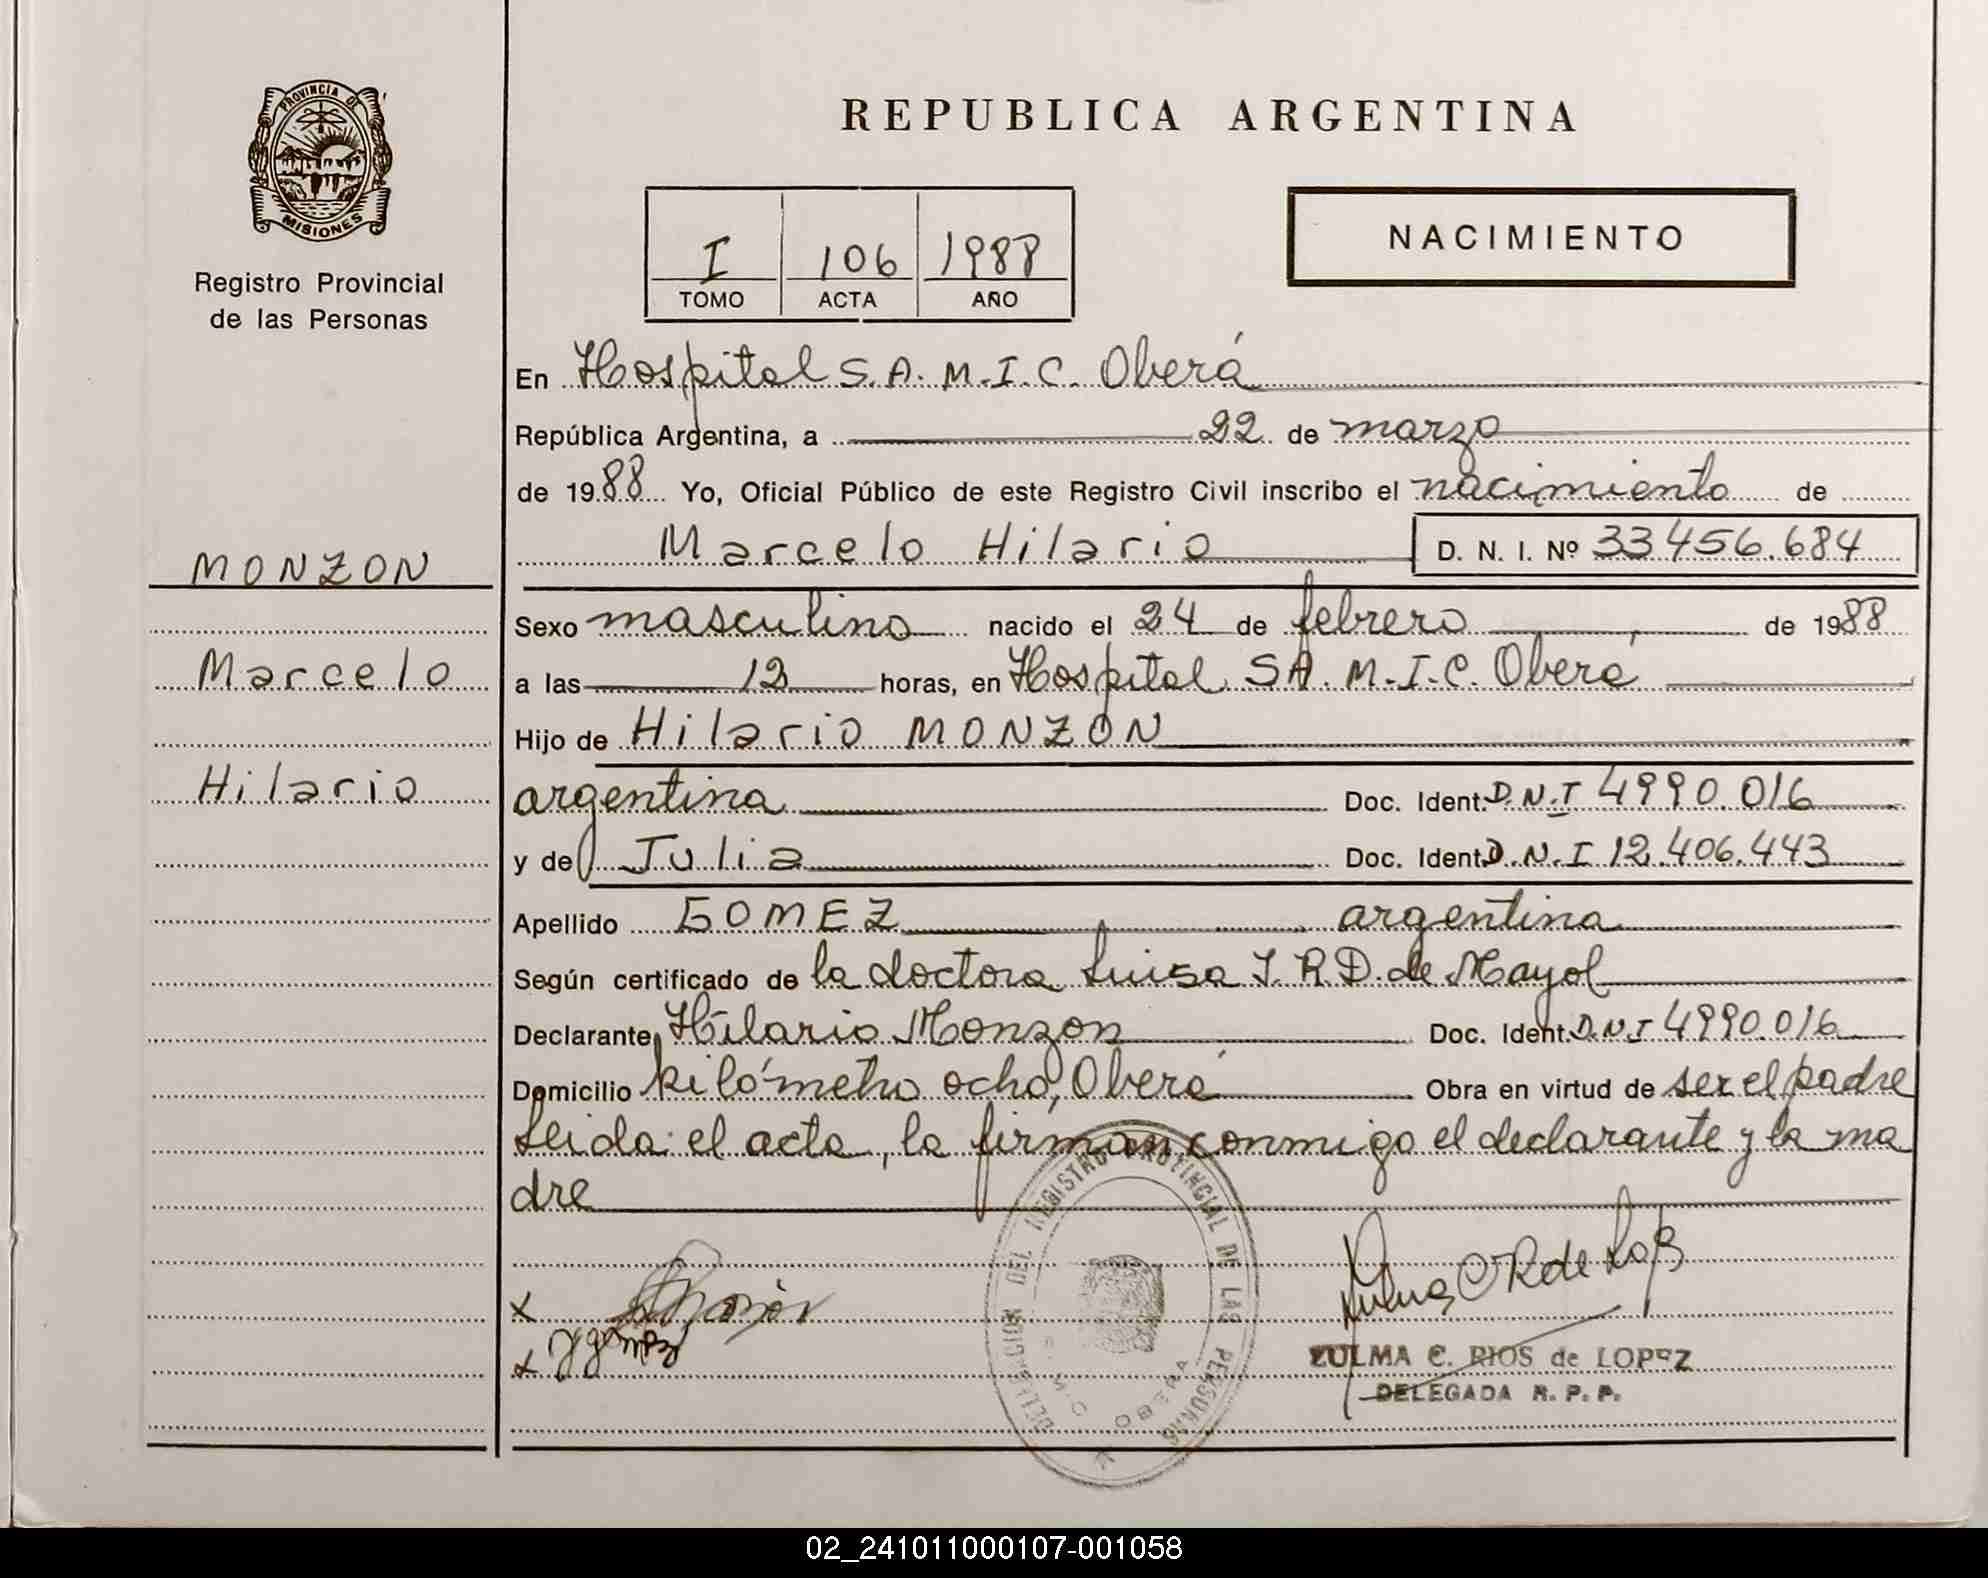 PROVINCIA DE
MISIONES
Registro Provincial
de las Personas
MONZON
Marcelo
Hilario
REPUBLICA ARGENTINA
I 106 1988
TOMO ACTA AÑO
NACIMIENTO
En Hospital S.A.M.I.C. Oberá
República Argentina, a 22 de marzo
de 1988 Yo, Oficial Público de este Registro Civil inscribo el nacimiento de
Marcelo Hilario D. N. I. Nº 33456.684
Sexo masculino nacido el 24 de febrero de 1988
a las 12 horas, en Hospital S.A.M.I.C. Oberá
Hijo de Hilario MONZON
argentina Doc. Ident. D.N.I 4990.016
y de Julia Doc. Ident. D.N.I 12.406.443
Apellido GOMEZ argentina
Según certificado de la doctora Luisa I.R.D. de Mayol
Declarante Hilario Monzon Doc. Ident. D.N.I 4990.016
Domicilio kilómetro ocho, Oberá Obra en virtud de ser el padre
Leida el acta, la firman conmigo el declarante y la ma
dre
DELEGACION DEL REGISTRO PROVINCIAL DE LAS PERSONAS
OBERA
x
x J gomez
ZULMA C. RIOS de LOPEZ
DELEGADA R. P. P.
02_241011000107-001058